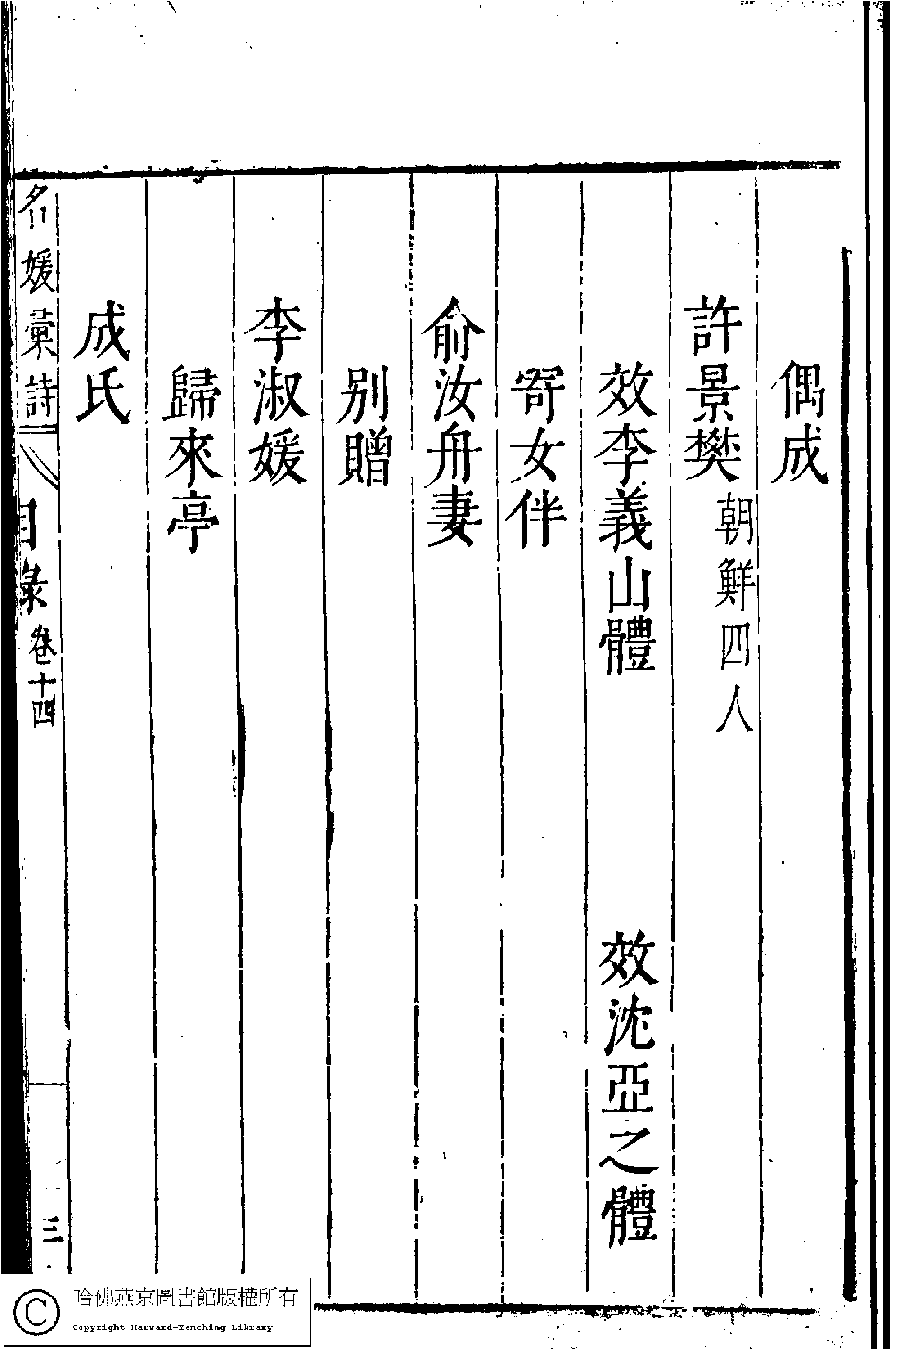 偶成
許景樊 朝鮮四人
效李義山體 效沈亞之體
寄女伴
俞汝舟妻
別贈
李淑媛
歸來亭
成氏
名媛彙詩 目錄 卷十四 三
哈佛燕京圖書館版權所有
Copyright Harvard-Yenching Library